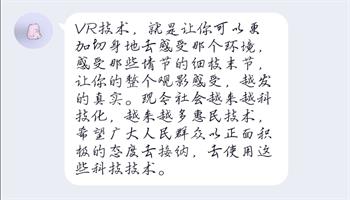 VR技术，就是让你可以更
加切身地去感受那个环境，
感受那些情节的细枝末节，
让你的整个观影感受，越发
的真实。现今社会越来越科
技化，越来越多惠民技术，
希望广大人民群众以正面积
极的态度去接纳，去使用这
些科技技术。